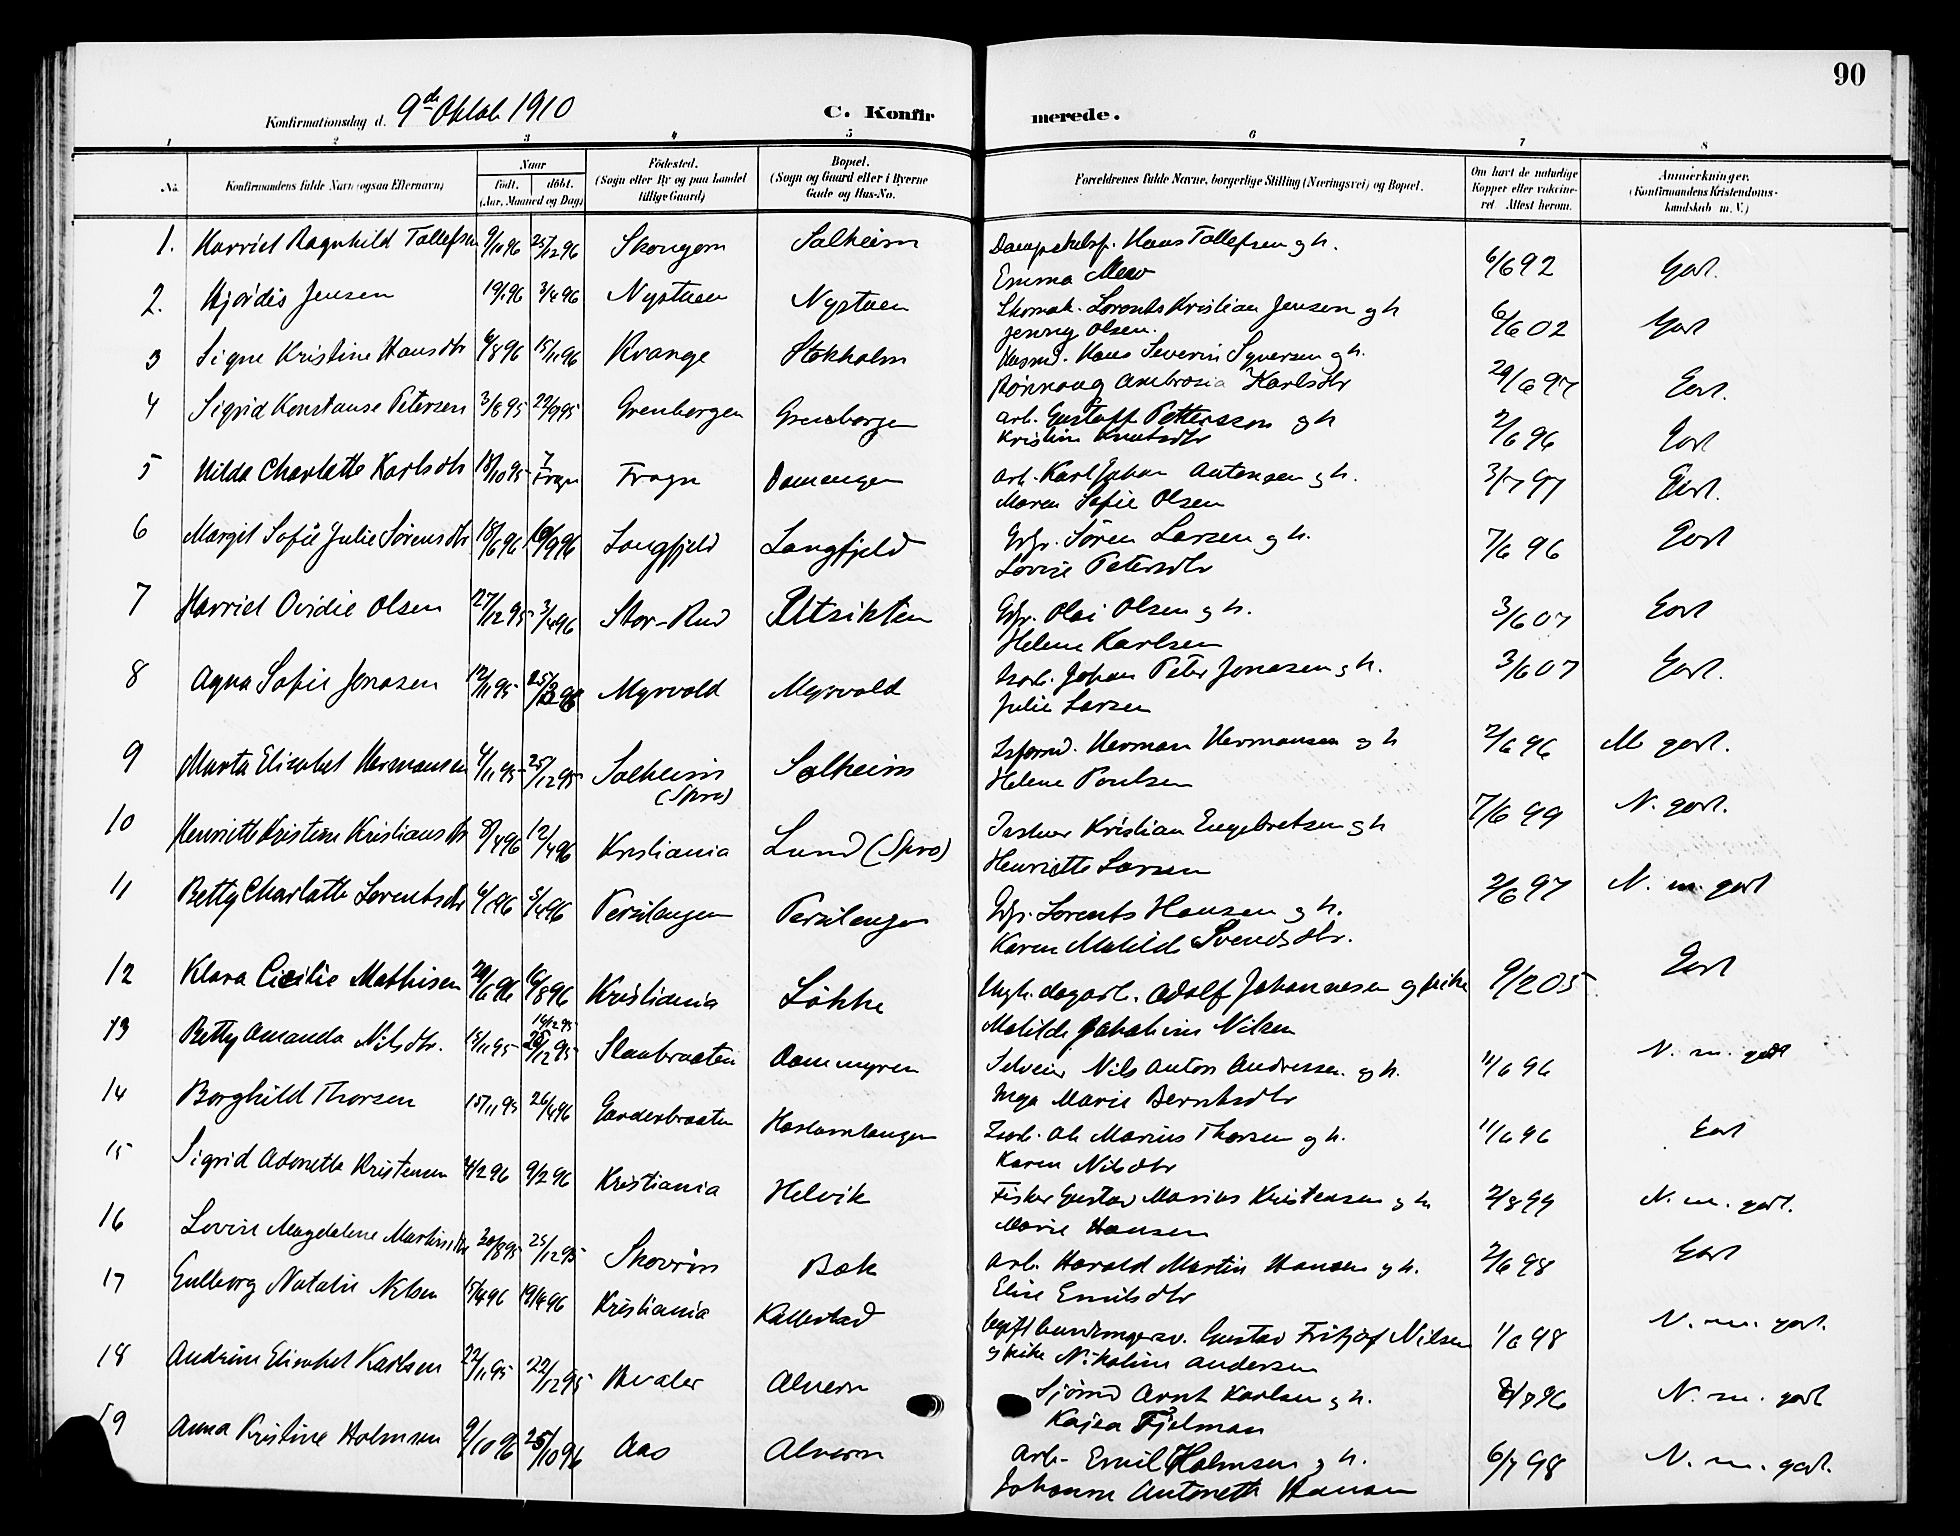 90
Konfirmationsdag d. 9de Oktob 1910 C. Konfirmerede.
1 2 3 4 5 6 7 8
No. Konfirmandens fulde Navn (ogsaa Efternavn) Naar født. døbt. (Aar, Maaned og Dag) Fødested. (Sogn eller By og paa Landet tillige Gaard) Bopæl. (Sogn og Gaard eller i Byerne Gade og Hus-No. Forældrenes fulde Navne, borgerlige Stilling (Næringsvei) og Bopæl. Om havt de naturlige Kopper eller vakcineret. Attest herom. Anmærkninger. (Konfirmandens Kristendomskundskab m. V.)
1. Harriet Ragnhild Tollefsen 9/10 96 25/12 96 Skougem Solheim Hans Tollefsen og h. 6/6 92 Godt.
Emma
2. Hjördis Jensen 19/1 96 3/4 96 Nystuen Nystuen Skomak. Lorents Kristian Jensen og h 6/6 02 Godt
Jenny Olsen.
3 Signe Kristine Hansdtr 6/8 96 15/11 96 Kvange Stokholm Husmd. Hans Severin Syversen og h. 29/6 97 Godt.
Rönnaug Ambrosia Karlsdtr
4 Sigrid Konstanse Petersen 3/8 95 22/9 95 Grenborgen Grenborgen Arb. Gustaff Pettersson og h 2/6 96 Godt
Kristine Knutsdtr
5 Hilda Charlotte Karlsdtr 18/10 95 7 Frogn Frogn Damengen Arb. Karl Johan Antonsen og h. 3/7 97 Godt.
Maren Sofie Olsen
6 Margit Sofie Julie Sørensdtr 18/6 96 10/9 96 Langfjeld Langfjeld Gbr. Søren Larsen og h. 7/6 96 Godt
Lovise Petersdtr
7 Harriet Ovidie Olsen 27/12 95 3/4 96 Stor-Rud Utsikten Gbr. Olai Olsen og h. 3/6 07 Godt
Helene Karlsen
8 Agna Sofie Jonasen 12/11 95 25/3 96 Myrvold Myrvold Johan Peter Jonasen og h. 3/6 07 Godt.
Julie Larsen
9 Marta Elisabet Hermansen 4/11 95 25/12 95 Solheim (Spro) Solheim Herman Hermansen og h 2/6 96 M godt.
Helene Poulsen
10 Henriette Kristine Kristiansdtr 8/4 96 12/4 96 Kristiania Lund (Spro) Kristian Engebretsen og h 7/6 99 N. godt.
Henriette Larsen
11 Betty Charlotte Lorentsdtr 6/1 96 3/4 96 Persilengen Persilengen Gbr. Lorents Hansen og h. 2/6 97 N. m. godt
Karen Matilde Svendsdtr.
12 Klara Cicilie Mathisen 29/6 96 16/8 96 Kristiania Løkke Ungk. dagarb. Adolf Johannesen og pike 9/2 05 Godt
Matilde Jakobine Nilsen
13 Betty Amanda Nilsdtr. 15/11 95 26/12 95 Slaabraaten Dammyren Selveier Nils Anton Andressen og h. 11/6 96 N. m. godt
Inga Marie Berntsdtr
14 Borghild Thorsen 15/11 95 26/4 96 Garderbraaten Haslumtangen Ole Marius Thorsen og h. 11/6 96 Godt
Karen Nilsdtr
15 Sigrid Adonette Kristensen 4/2 96 9/2 96 Kristiania Helvik Fisker Gustav Marius Kristensen og h 2/8 99 N. m. godt.
Marie Hansen
16 Lovise Magdalene Martinsdtr 30/8 95 25/12 95 Skovrön Bæk Arb. Harald Martin Hansen og h. 2/6 98 Godt
Elise Emilsdtr
17 Gulborg Natalie Nilsen 15/4 96 19/4 96 Kristiania Kallestad Gustav Fritjof Nilsen 1/6 98 N. m. godt.
og pike Nikoline Andersen
18 Andrine Elisabet Karlsen 22/11 95 22/12 95 Hvaler Alvern Sjömd Arnt Karlsen og h. 8/7 96 N. m. godt
Kajsa Fjelman
19 Anna Kristine Holmsen 9/10 96 25/10 96 Aas Alvern Arb. Emil Holmsen og h. 6/7 98 N. m. godt.
Johanne Antonette Hansen